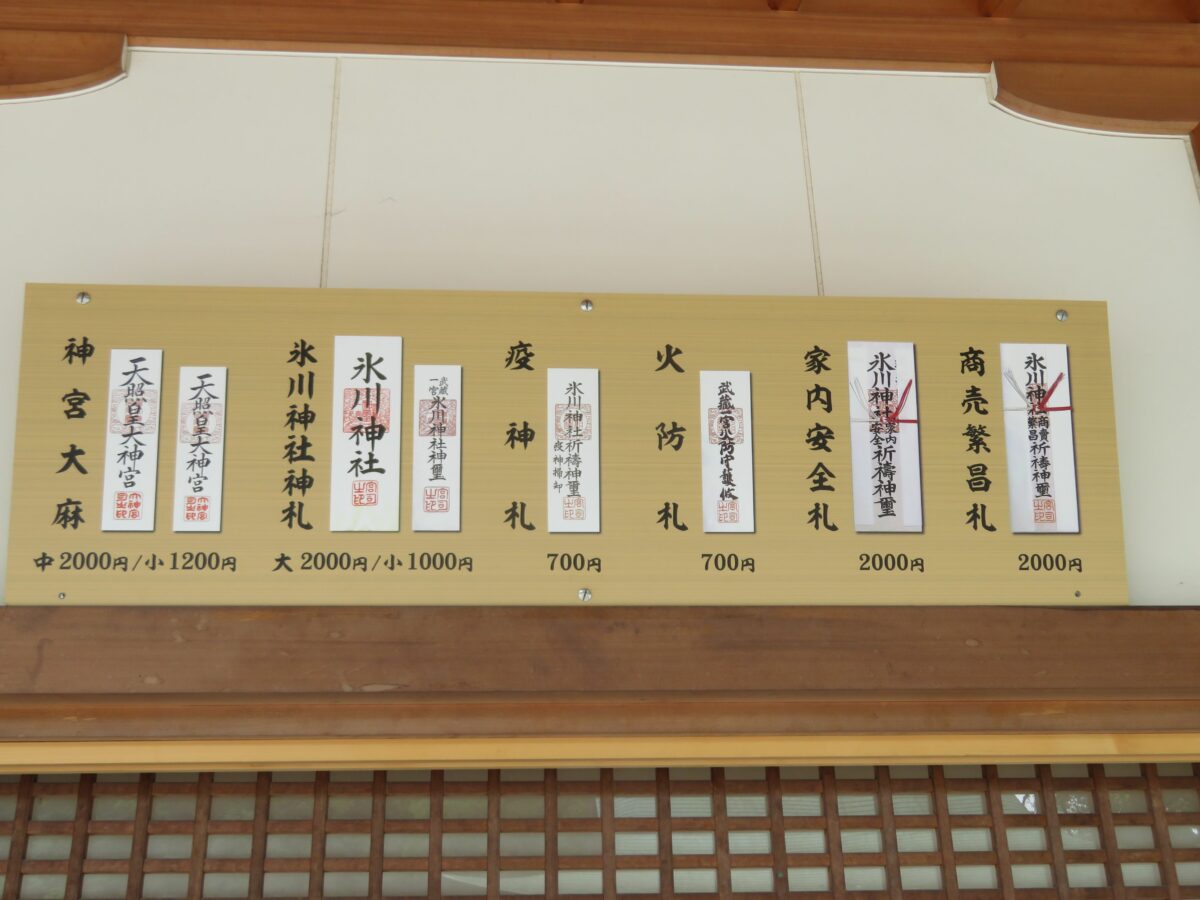 神宮大麻
天照皇大神宮
天照皇大神宮
中2000円/小1200円
氷川神社神札
氷川神社
武蔵一宮
氷川神社神璽
大2000円/小1000円
疫神札
氷川神社祈禱神璽
700円
火防札
700円
家内安全札
氷川神社家内安全祈禱神璽
2000円
商売繁昌札
氷川神社商賣繁昌祈禱神璽
2000円